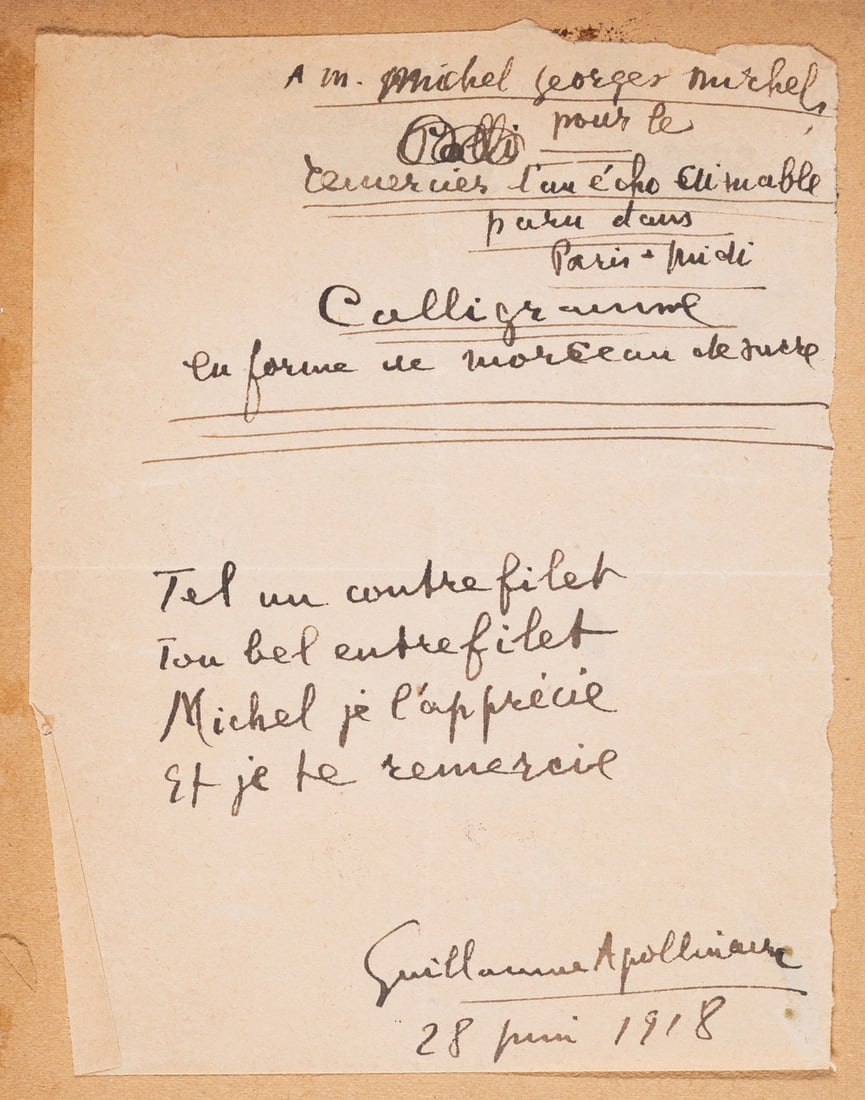 A M. Michel Georges Michel,
pour le
remercier d'un écho aimable
paru dans
Paris-Midi
Calligramme
en forme de morceau de sucre
Tel un contrefilet
Ton bel entrefilet
Michel je l'apprécie
Et je te remercie
Guillaume Apollinaire
28 juin 1918